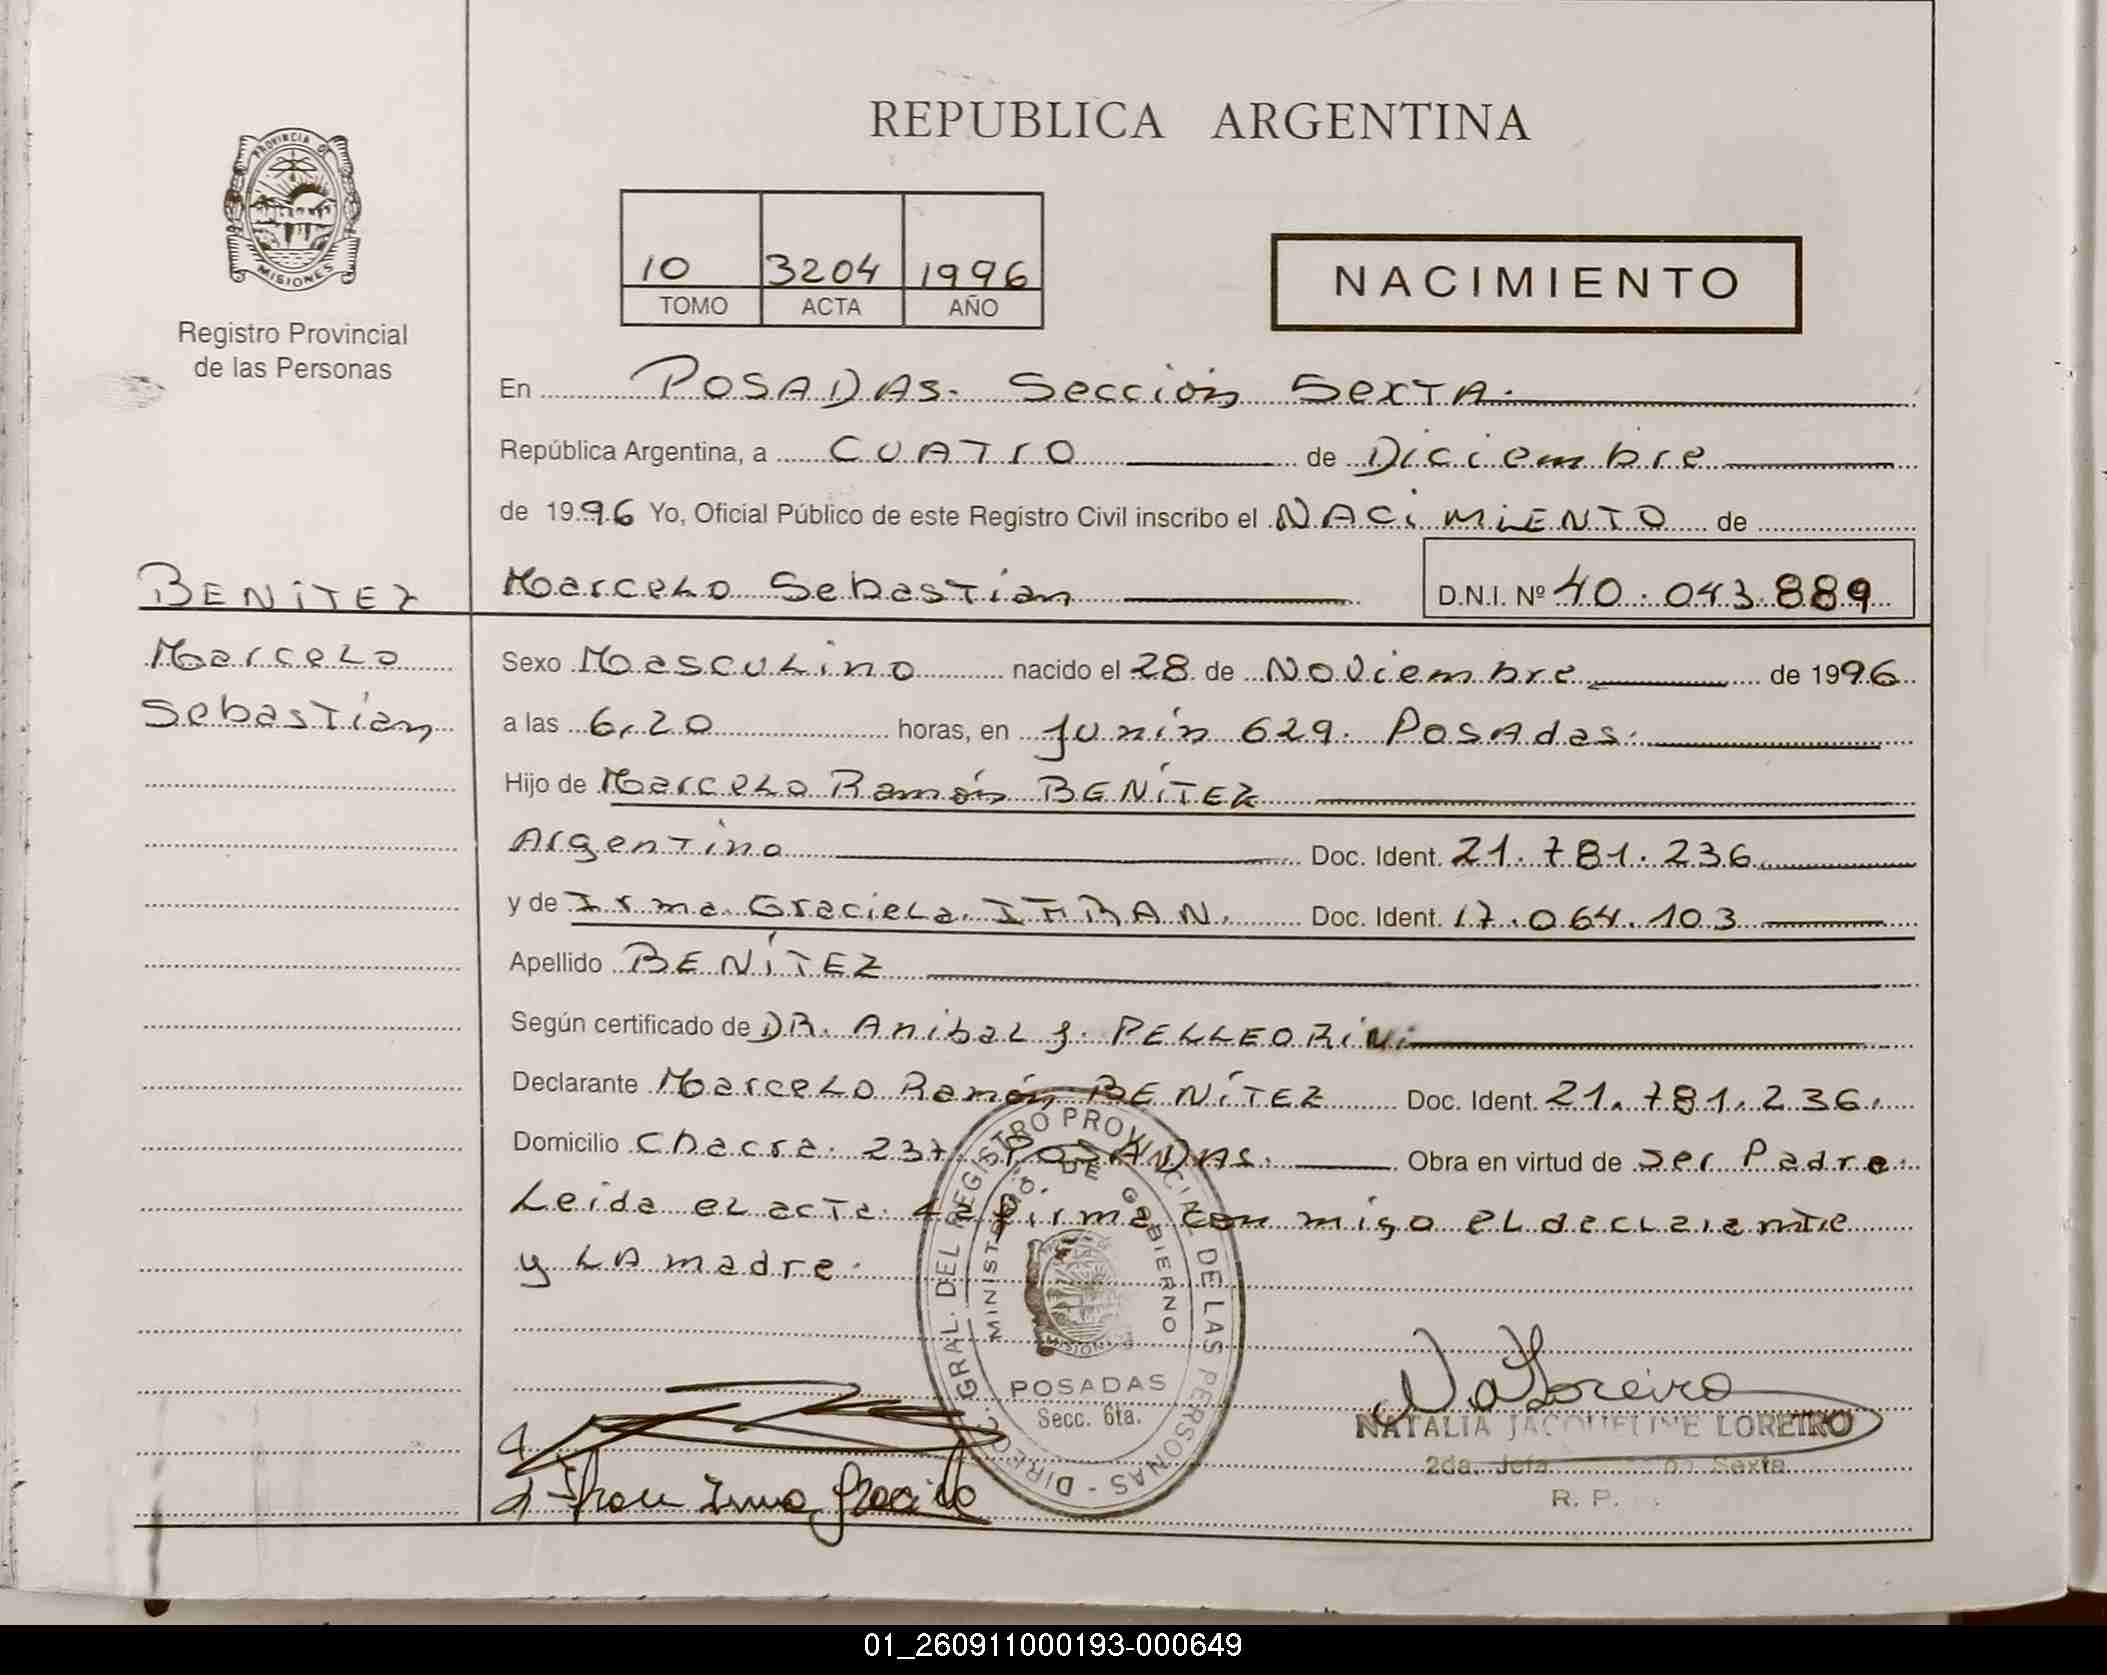 REPUBLICA ARGENTINA
PROVINCIA DE
MISIONES
Registro Provincial
de las Personas
10 3204 1996
TOMO ACTA AÑO
NACIMIENTO
En POSADAS. Sección Sexta.
República Argentina, a CUATRO de Diciembre
de 1996 Yo, Oficial Público de este Registro Civil inscribo el NACIMIENTO de
BENÍTEZ
Marcelo Sebastián D.N.I. Nº 40.043.889
Marcelo
Sebastián
Sexo Masculino nacido el 28 de Noviembre de 1996
a las 6,20 horas, en Junín 629. Posadas.
Hijo de Marcelo Ramón BENÍTEZ
Argentino Doc. Ident. 21.781.236
y de Irma Graciela Doc. Ident. 17.064.103
Apellido BENÍTEZ
Según certificado de DR. Anibal J.
Declarante Marcelo Ramón BENÍTEZ Doc. Ident. 21.781.236.
Domicilio Chacra 237 POSADAS. Obra en virtud de ser Padre.
Leida el acta la firma con migo el declarante
y LA madre.
DIREC. GRAL. DEL REGISTRO PROVINCIAL DE LAS PERSONAS
MINISTERIO DE GOBIERNO
MISIONES
POSADAS
Secc. 6ta.
Irma Graciela
NATALIA JACQUELINE LOREIRO
2da. Jefa Sexta
R. P.
01_260911000193-000649